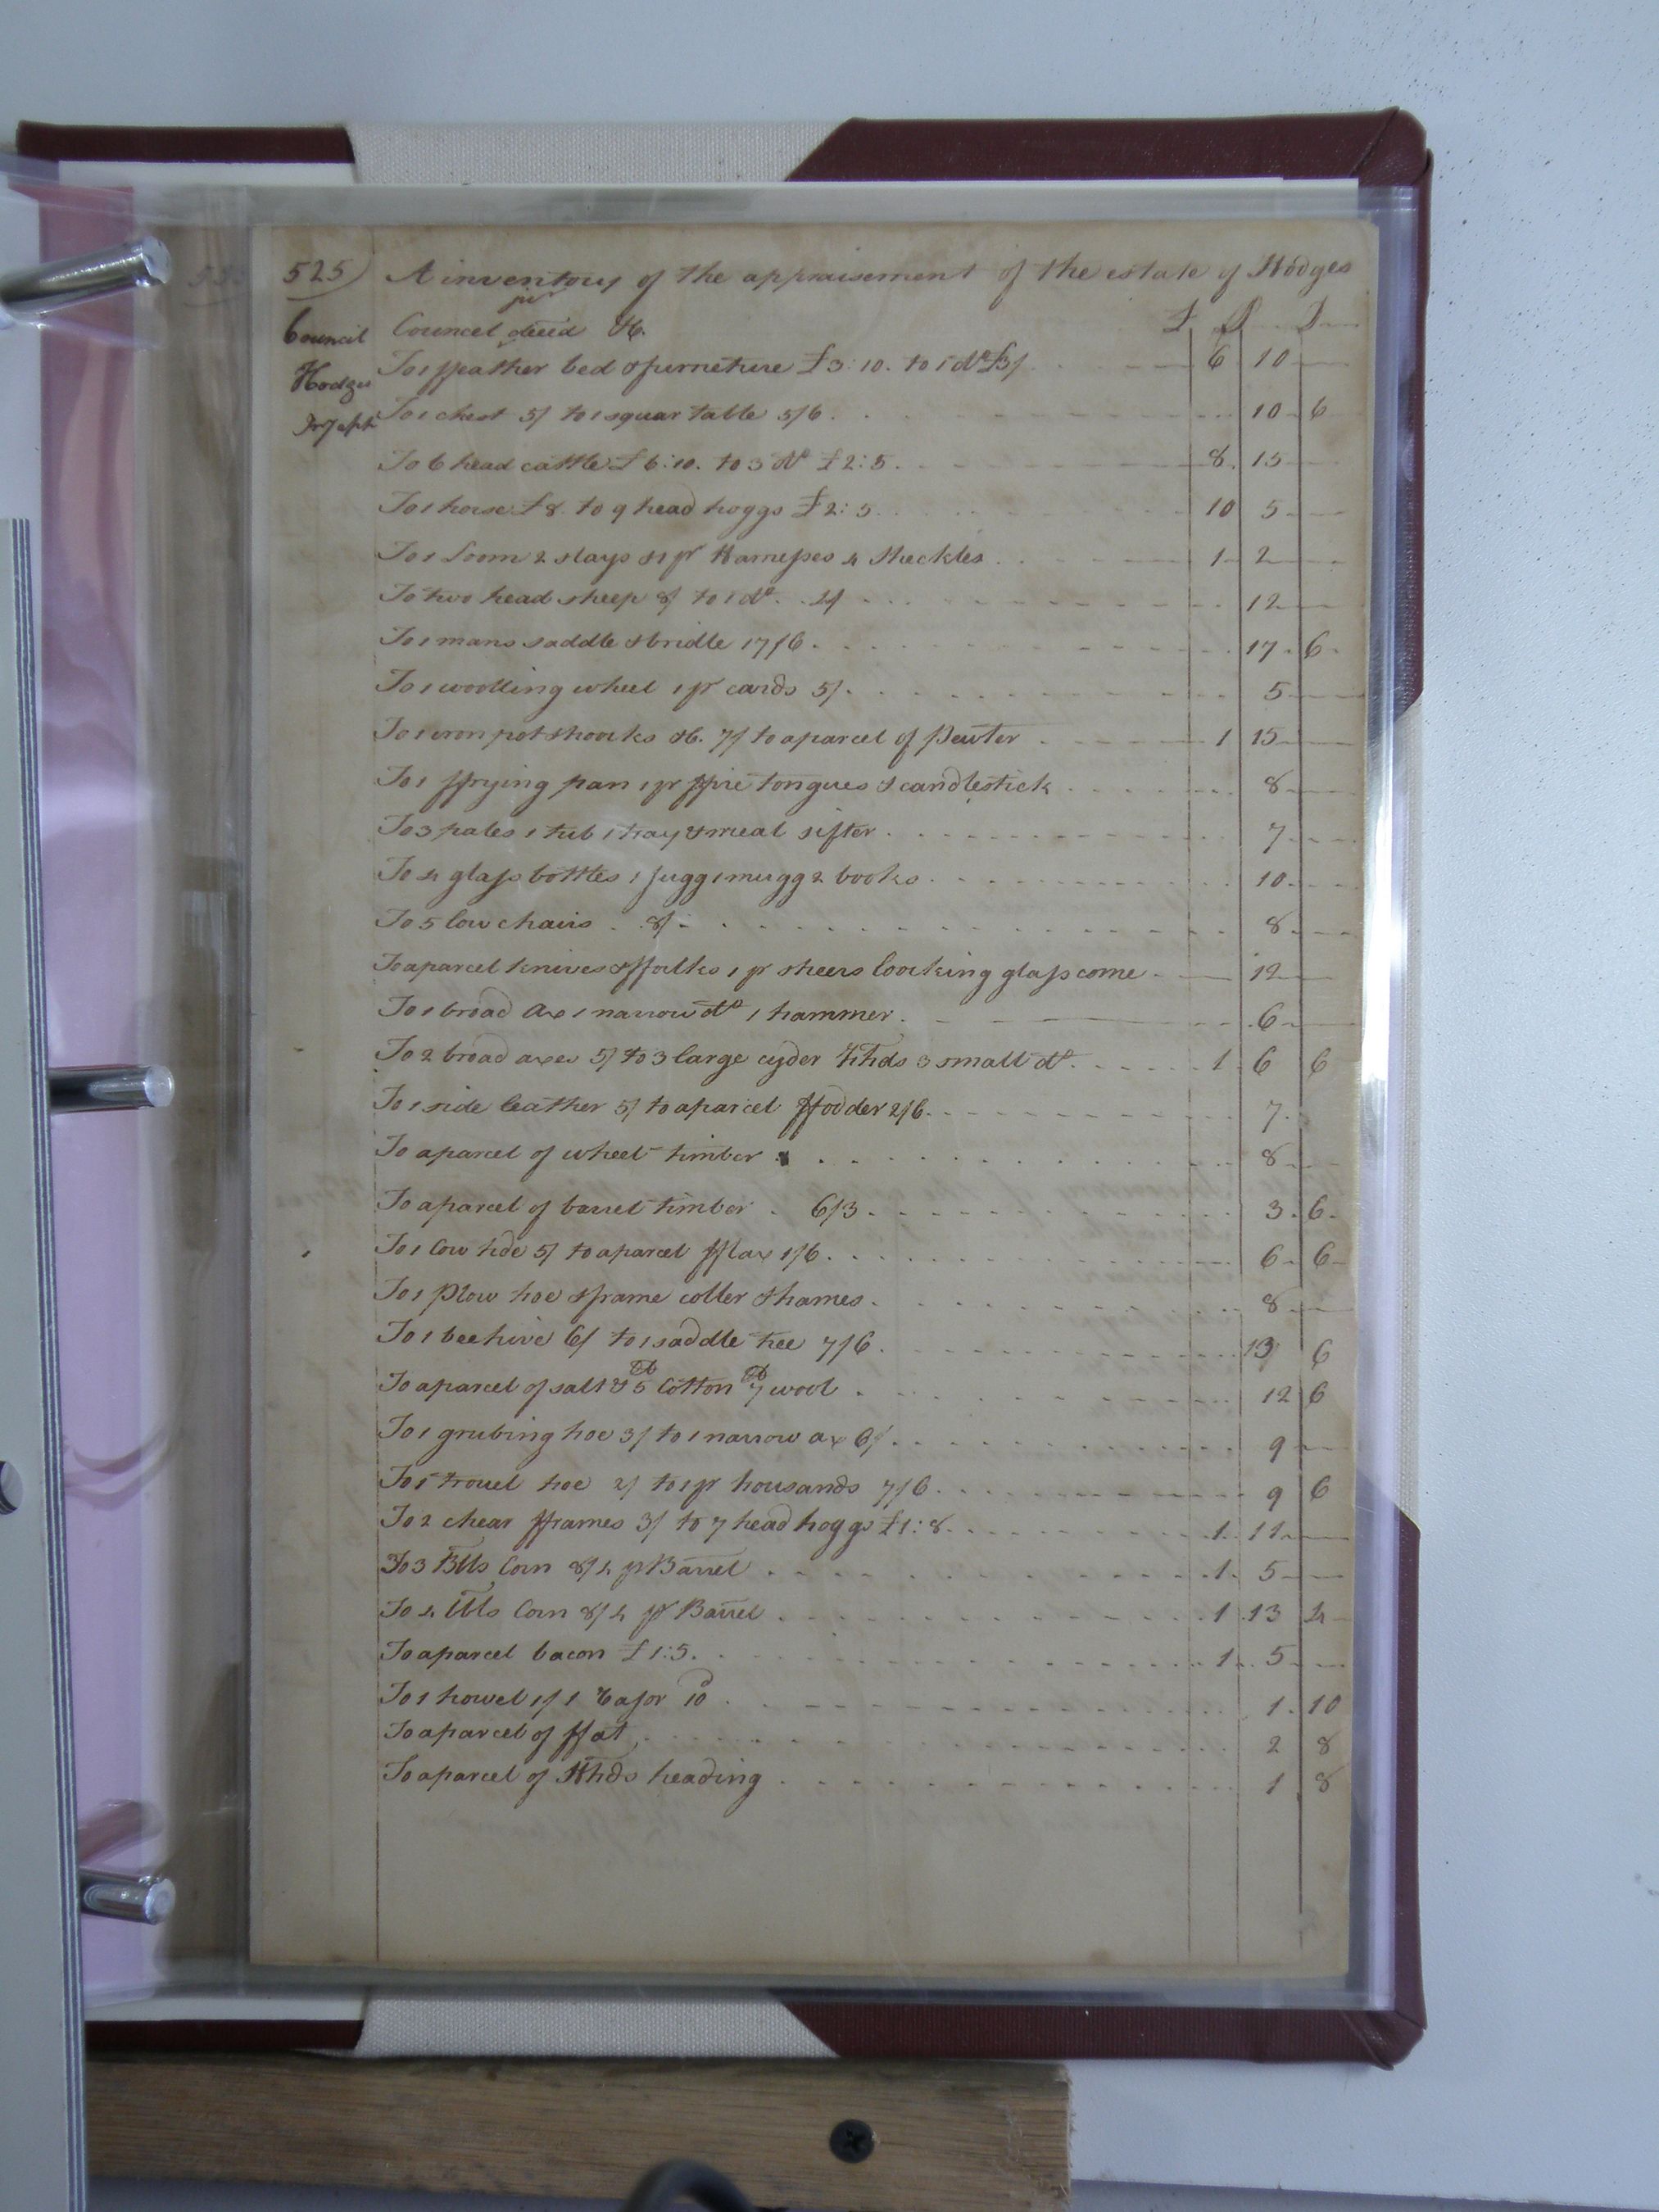 525) A inventory of the appraisement of the estate of Hodges
Council Councel jur decd &c. £ S D
Hodges To 1 ffeather bed & furneture £3:10. to 1 do £3/ 6 10
Inv & apt To 1 chest 5/ to 1 squar table 5/6 10 6
To 6 head cattle £6:10. to 3 do £2:5. 8 15
To 1 horse £8 to 9 head hoggs £2:5. 10 5
To 1 Loom 2 slays & 1 pr Harnesses 4 Sheckles 1 2
To two head sheep 8/ to 1 do 4/ 12
To 1 mans saddle & bridle 17/6. 17 6
To 1 woolling wheel 1 pr cards 5/. 5
To 1 iron pot & hooks &c. 7/ to aparcel of Pewter 1 15
To 1 ffrying pan 1 pr ffire tongues & candlestick 8
To 3 pales 1 tub 1 tray & meal sifter 7
To 4 glass bottles 1 Jugg 1 mugg 2 books 10
To 5 low chairs 8/ 8
To aparcel knives & ffolks 1 pr sheers loocking glass come 12
To 1 broad Ax 1 narrow do 1 hammer 6
To 2 broad axes 5/ to 3 large cyder hhds 3 small do 1 6 6
To 1 side leather 5/ to aparcel ffodder 2/6 7
To aparcel of wheel timber 8
To aparcel of barrel timber 6/3 3 6
To 1 Cow hide 5/ to aparcel fflax 1/6 6 6
To 1 Plow hoe & frame coller & hames 8
To 1 bee hive 6/ to 1 saddle tree 7/6 13 6
To aparcel of salt & 5 lb Cotton 7 lb wool 12 6
To 1 grubing hoe 3/ to 1 narrow ax 6/ 9
To 1 trouel hoe 2/ to 1 pr housands 7/6 9 6
To 2 chear fframes 3/ to 7 head hoggs £1:8 1 11
To 3 Blls Corn 8/4 pr Barrel 1 5
To 4 blls Corn 8/4 pr Barrel 1 13 4
To aparcel bacon £1:5. 1 5
To 1 howel 1/ 1 Rasor 10d 1 10
To aparcel of ffat 2 8
To aparcel of Hhds heading 1 8